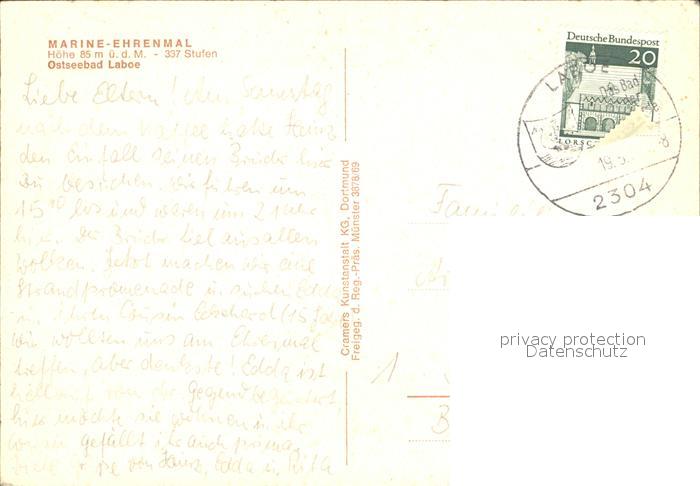 MARINE-EHRENMAL
Höhe 85 m ü. d. M. - 337 Stufen
Ostseebad Laboe
Liebe Eltern! Am Sonntag
nach dem Kaffee hatte Heinz
den Einfall seinen Bruder hier
zu besuchen. Wir fuhren um
15 10 los und waren um 2 Uhr
hier. Der Bruder fiel aus allen
Wolken. Jetzt machen wir eine
Strandpromenade u. suchen Edda
u. ihren Cousin Eckehard (15 J.)
wir wollten uns am Ehrenmal
treffen, aber denkste! Edda ist
von der Gegend begeistert
hier möchte sie wohnen u. ihr
Cousin gefällt ihr auch prima.
von Heinz, Edda u.
Cramers Kunstanstalt KG, Dortmund
Freigeg. d. Reg.-Präs. Münster 3878/69
Deutsche Bundespost
20
LORSC
LABOE
Das Bad
der
19.5.
8
2304
Familie
1
B
privacy protection
Datenschutz